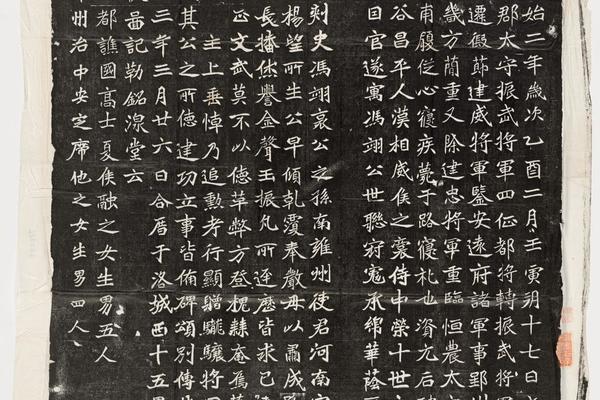 始二年歲次乙酉二月壬寅朔十七日
郡太守振武將軍四征都將轉振武將軍
遷假節建威將軍鑒安遠府諸軍事郢
幾方蘭重又除建忠將軍重臨恒農太
甫履從心寢疾薨于路寢礼也資元后
谷昌平人漢相威侯之裔侍中榮十世
因官遂寓馮翊公世聯寇承緜華蔭
刺史馮翊哀公之孫南雍州使君河南
楊望所生公早傾乾覆奉嚴母以肅成
長播休譽金聲玉振凡所逕歷皆求己
正文武莫不以德革弊方登槐棘庵雁
主上垂悼乃追勲考行顯贈驤將
其公之所德建功立事皆俻碑頌別傳
年三月廿六日合厝于洛城西十五里
記勒銘湶堂云
都譙國高士夏侯融之女生男五人
州治中安定席他之女生男四人